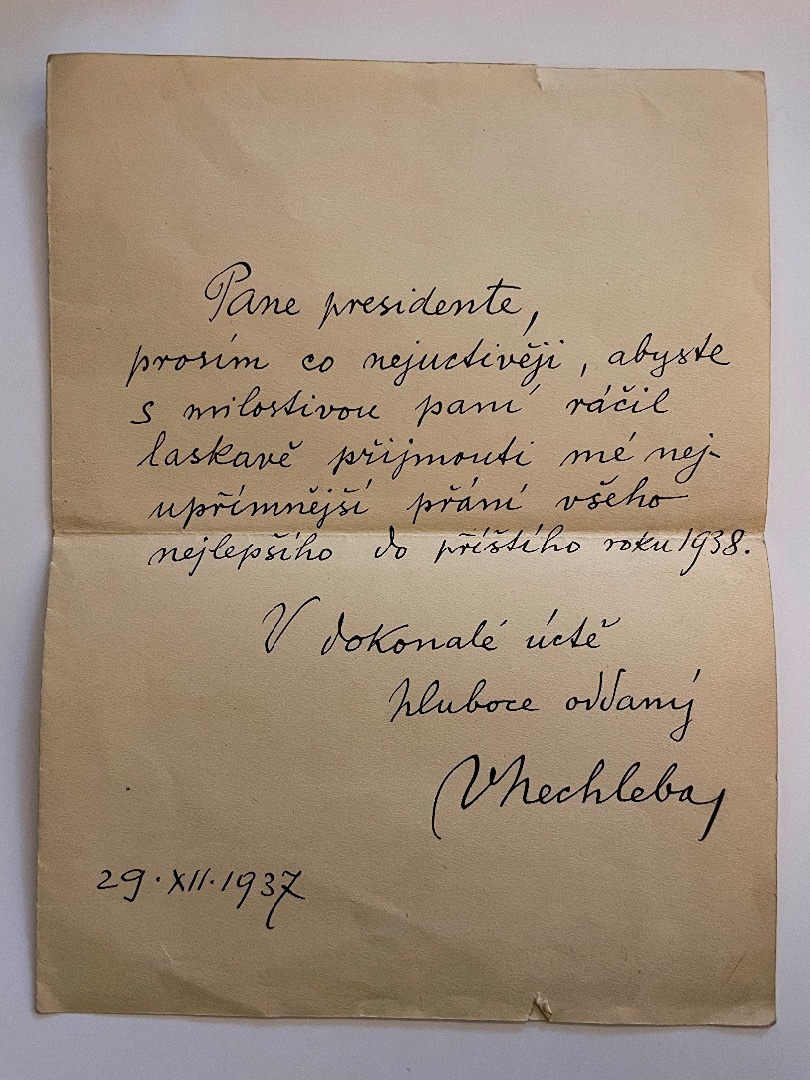 Pane presidente,
prosím co nejuctivěji, abyste
s milostivou paní ráčil
laskavě přijmouti mé nej-
upřímnější přání všeho
nejlepšího do příštího roku 1938.
V dokonalé úctě
hluboce oddaný
VNechleba
29. XII. 1937